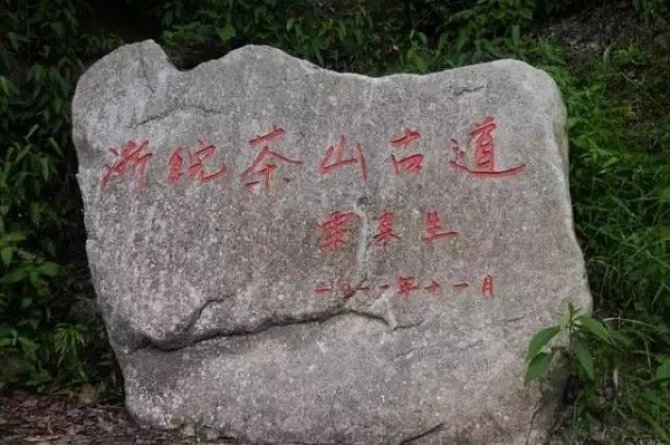 浙皖茶山古道
二〇一一年十一月